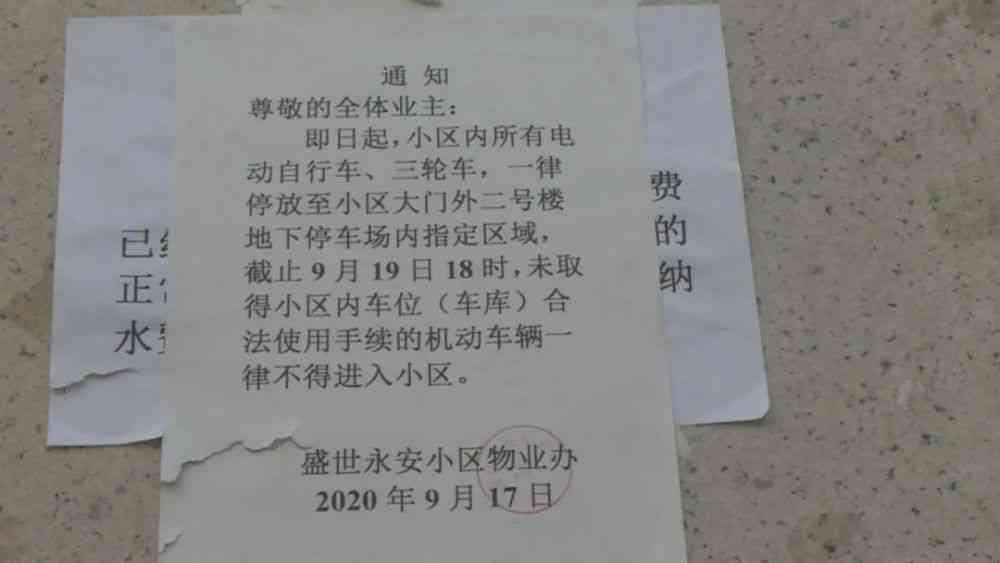 通 知
尊敬的全体业主：
即日起，小区内所有电
动自行车、三轮车，一律
停放至小区大门外二号楼
地下停车场内指定区域，
截止 9 月 19 日 18 时，未取
得小区内车位（车库）合
法使用手续的机动车辆一
律不得进入小区。
盛世永安小区物业办
2020 年 9 月 17 日
费
已 的
正 纳
水